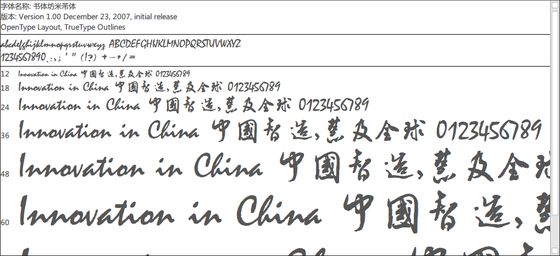 字体名称: 书体坊米芾体
版本: Version 1.00 December 23, 2007, initial release
OpenType Layout, TrueType Outlines
abcdefghijklmnopqrstuvwxyz ABCDEFGHIJKLMNOPQRSTUVWXYZ
1234567890.:,; ' " (!?) +-*/=
12 Innovation in China 中國智造,慧及全球 0123456789
18 Innovation in China 中國智造,慧及全球 0123456789
24 Innovation in China 中國智造,慧及全球 0123456789
36 Innovation in China 中國智造,慧及全球 0123456789
48 Innovation in China 中國智造,慧及全球
60 Innovation in China 中國智造,慧